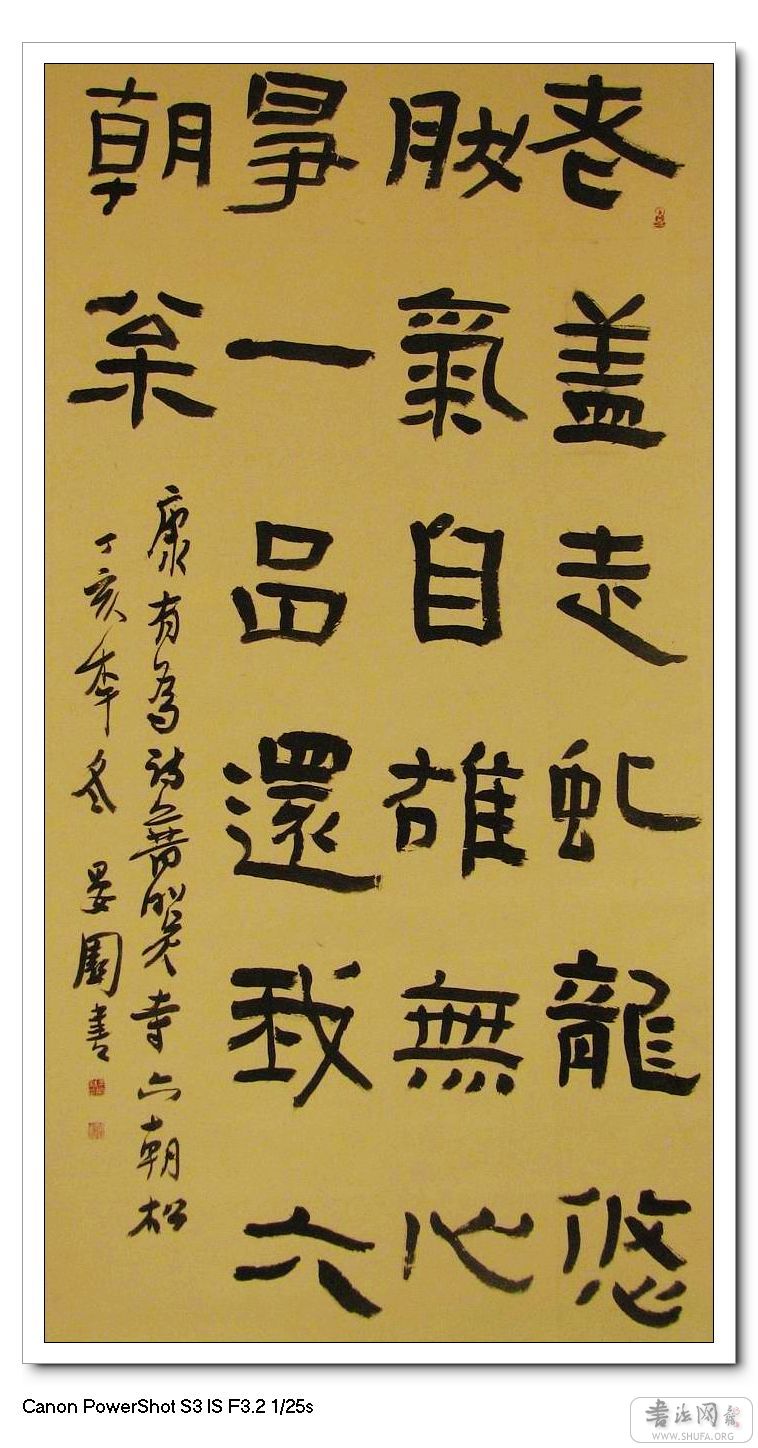 老盖走虬龍悠
氣自雄無心
爭一品還我六
朝枀
康有為詩普照寺六朝松
丁亥年冬 晏園書
Canon PowerShot S3 IS F3.2 1/25s
書法网
WWW.SHUFA.ORG